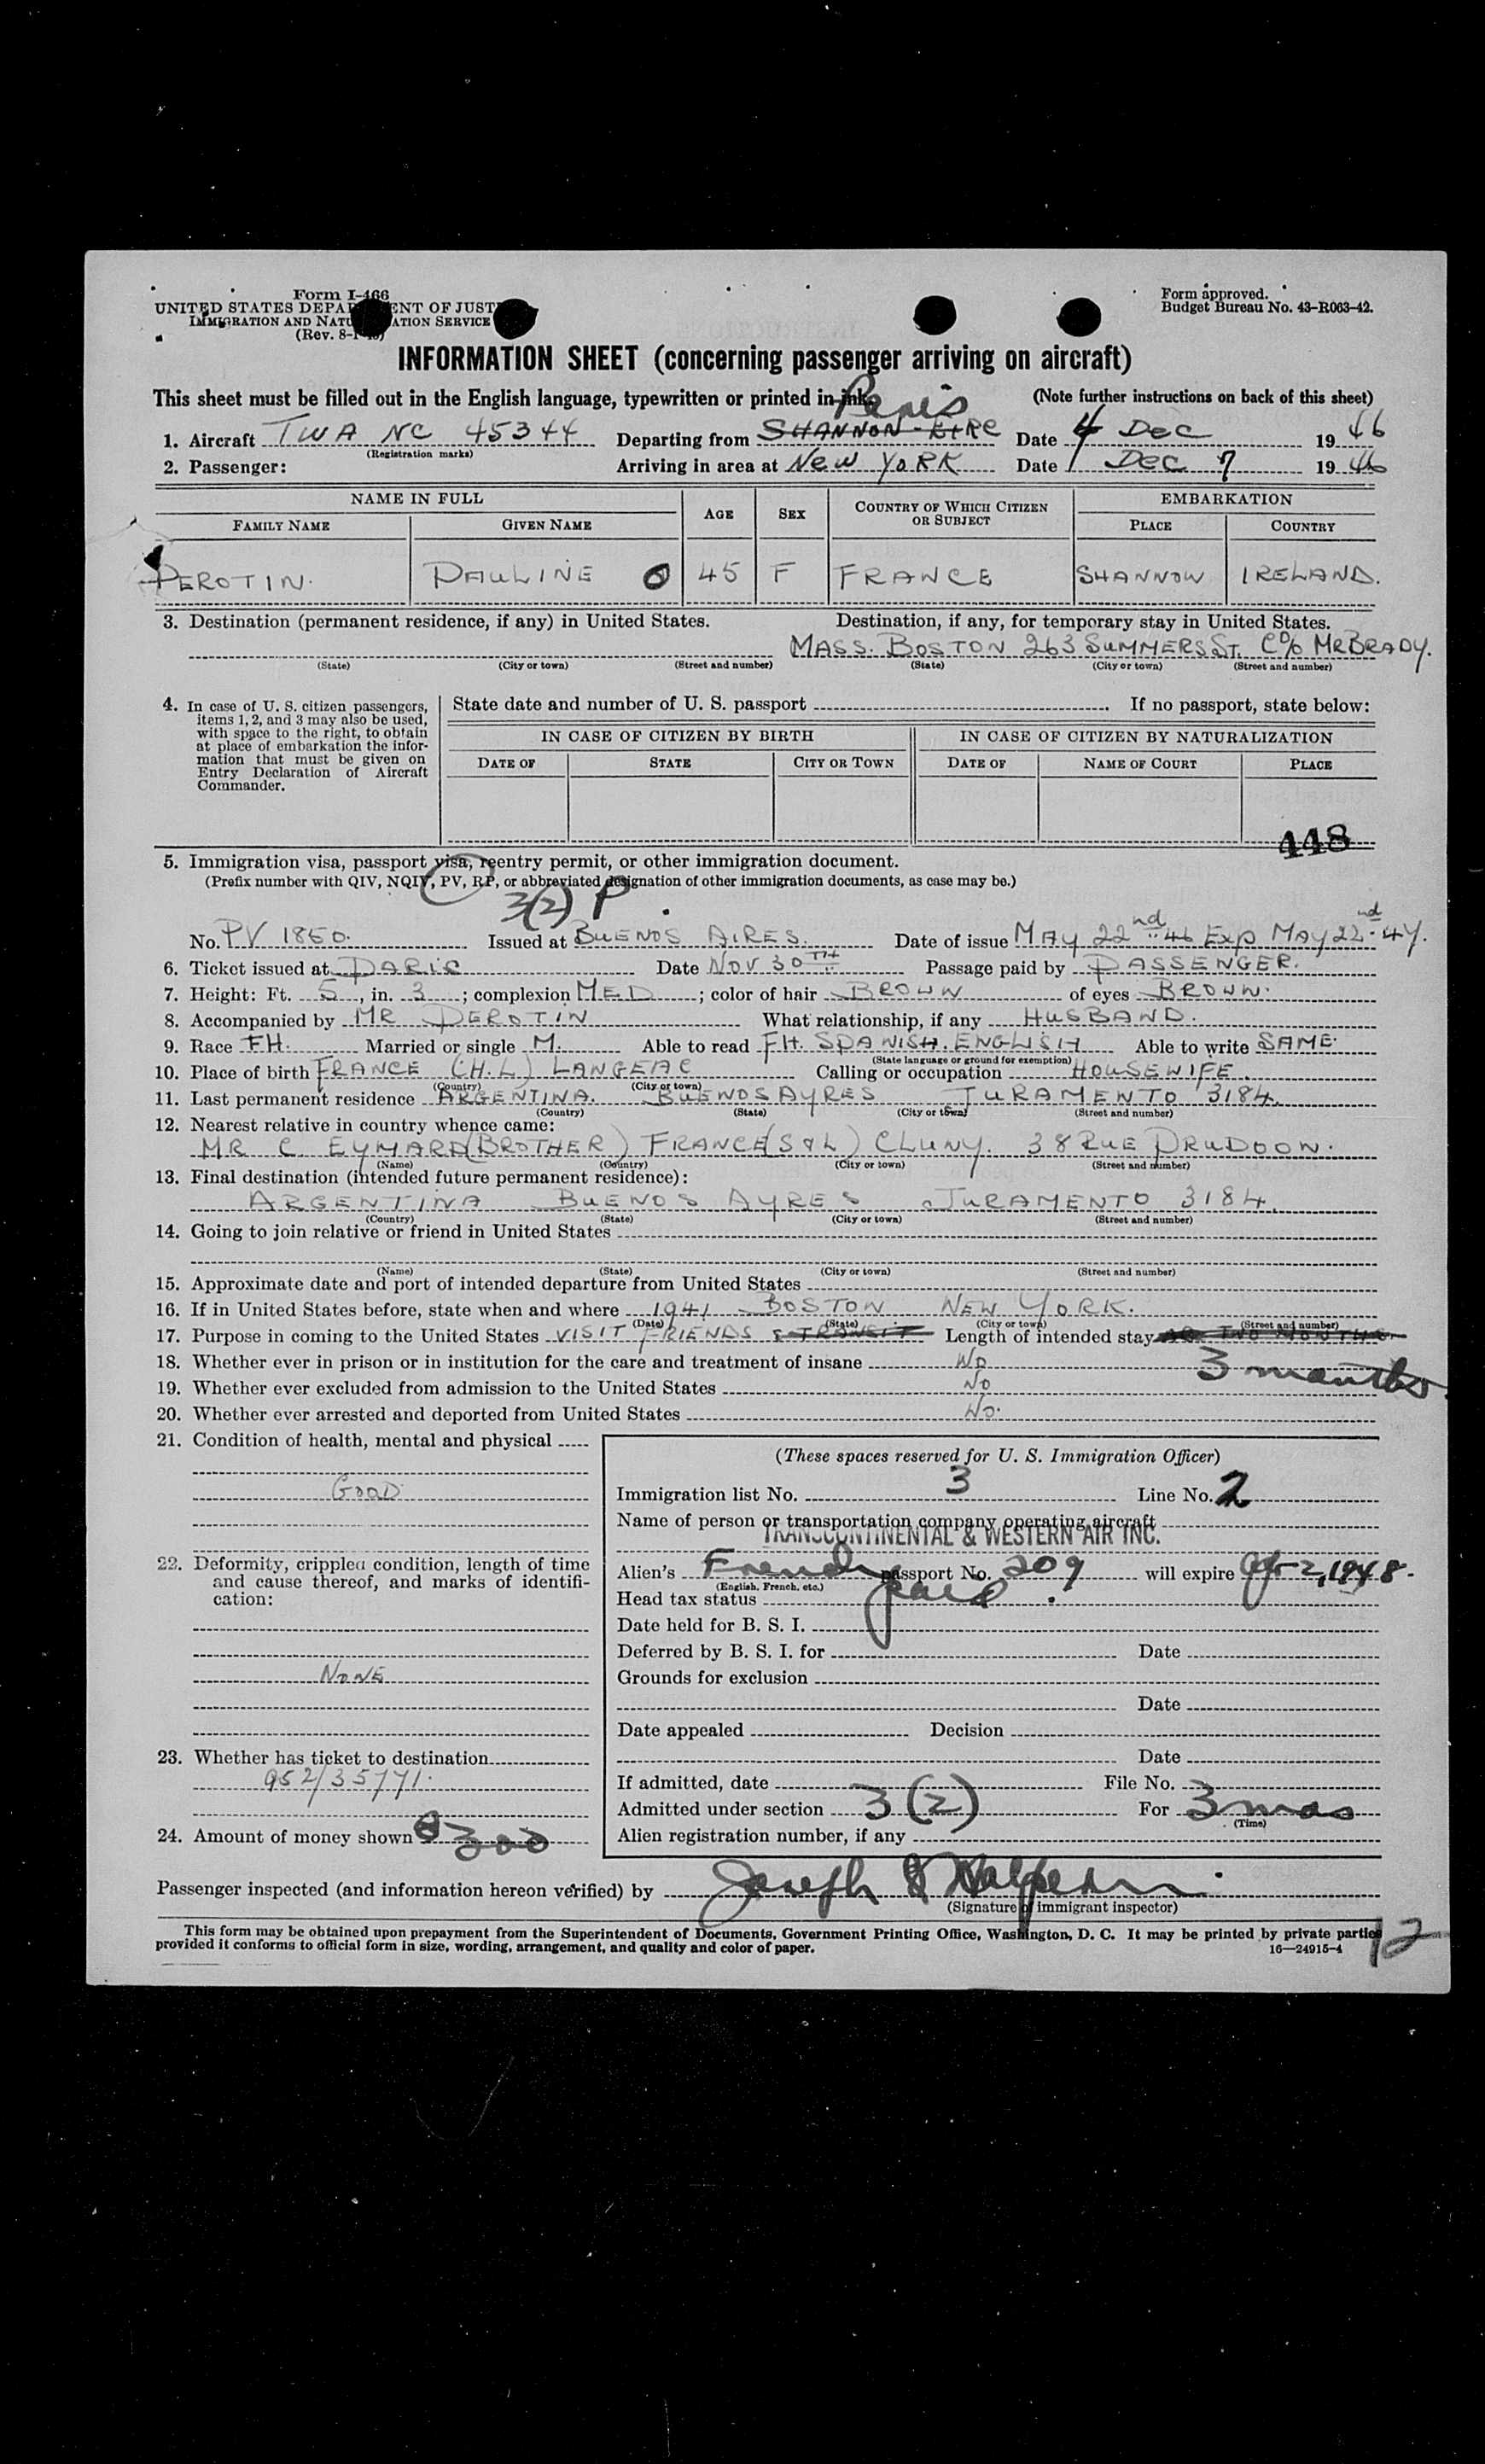 Form I-466
UNITED STATES DEPARTMENT OF JUST
IMMIGRATION AND NATU ATION SERVICE
(Rev. 8-1- )
Form approved.
Budget Bureau No. 43-R063-42.
INFORMATION SHEET (concerning passenger arriving on aircraft)
This sheet must be filled out in the English language, typewritten or printed in ink. (Note further instructions on back of this sheet)
Paris
1. Aircraft TWA NC 45344 Departing from SHANNON-EIRE Date 4 Dec 1946
(Registration marks)
2. Passenger: Arriving in area at New YORK Date Dec 7 1946
NAME IN FULL AGE SEX COUNTRY OF WHICH CITIZEN OR SUBJECT EMBARKATION
FAMILY NAME GIVEN NAME PLACE COUNTRY
PEROTIN. PAULINE 45 F FRANCE SHANNON IRELAND.
3. Destination (permanent residence, if any) in United States. Destination, if any, for temporary stay in United States.
MASS. BOSTON 263 SUMMERS ST. C% MR BRADY.
(State) (City or town) (Street and number) (State) (City or town) (Street and number)
4. In case of U. S. citizen passengers, items 1, 2, and 3 may also be used, with space to the right, to obtain at place of embarkation the information that must be given on Entry Declaration of Aircraft Commander.
State date and number of U. S. passport If no passport, state below:
IN CASE OF CITIZEN BY BIRTH IN CASE OF CITIZEN BY NATURALIZATION
DATE OF STATE CITY OR TOWN DATE OF NAME OF COURT PLACE
448
5. Immigration visa, passport visa, reentry permit, or other immigration document.
(Prefix number with QIV, NQIV, PV, RP, or abbreviated designation of other immigration documents, as case may be.)
3(2) P
No. PV 1850. Issued at BUENOS AIRES. Date of issue MAY 22nd 46 Exp MAY 22nd 47.
6. Ticket issued at PARIS Date NOV 30TH Passage paid by PASSENGER.
7. Height: Ft. 5, in. 3; complexion MED; color of hair BROWN of eyes BROWN.
8. Accompanied by MR PEROTIN What relationship, if any HUSBAND.
9. Race FH. Married or single M. Able to read FH. SPANISH. ENGLISH Able to write SAME.
(State language or ground for exemption)
10. Place of birth FRANCE (H.L) LANGEAC Calling or occupation HOUSEWIFE.
(Country) (City or town)
11. Last permanent residence ARGENTINA. BUENOS AYRES JURAMENTO 3184.
(Country) (State) (City or town) (Street and number)
12. Nearest relative in country whence came:
MR C. EYMARD (BROTHER) FRANCE (S&L) CLUNY. 38 RUE PRUDOON.
(Name) (Country) (City or town) (Street and number)
13. Final destination (intended future permanent residence):
ARGENTINA BUENOS AYRES JURAMENTO 3184.
(Country) (State) (City or town) (Street and number)
14. Going to join relative or friend in United States
(Name) (State) (City or town) (Street and number)
15. Approximate date and port of intended departure from United States
16. If in United States before, state when and where 1941 BOSTON NEW YORK.
(Date) (State) (City or town) (Street and number)
17. Purpose in coming to the United States VISIT FRIENDS & TRANSIT Length of intended stay TWO MONTHS
3 months
18. Whether ever in prison or in institution for the care and treatment of insane NO
19. Whether ever excluded from admission to the United States NO
20. Whether ever arrested and deported from United States NO.
21. Condition of health, mental and physical
GOOD
22. Deformity, crippled condition, length of time and cause thereof, and marks of identification:
NONE
23. Whether has ticket to destination
952/35771.
24. Amount of money shown 300
(These spaces reserved for U. S. Immigration Officer)
Immigration list No. 3 Line No. 2
Name of person or transportation company operating aircraft
TRANSCONTINENTAL & WESTERN AIR INC.
Alien's French passport No. 209 will expire 2, 1948.
(English, French, etc.)
Head tax status paid.
Date held for B. S. I.
Deferred by B. S. I. for Date
Grounds for exclusion
Date
Date appealed Decision
Date
If admitted, date File No.
Admitted under section 3(2) For 3 mos
(Time)
Alien registration number, if any
Passenger inspected (and information hereon verified) by Joseph Halpern
(Signature of immigrant inspector)
This form may be obtained upon prepayment from the Superintendent of Documents, Government Printing Office, Washington, D. C. It may be printed by private parties
provided it conforms to official form in size, wording, arrangement, and quality and color of paper. 16—24915-4
12